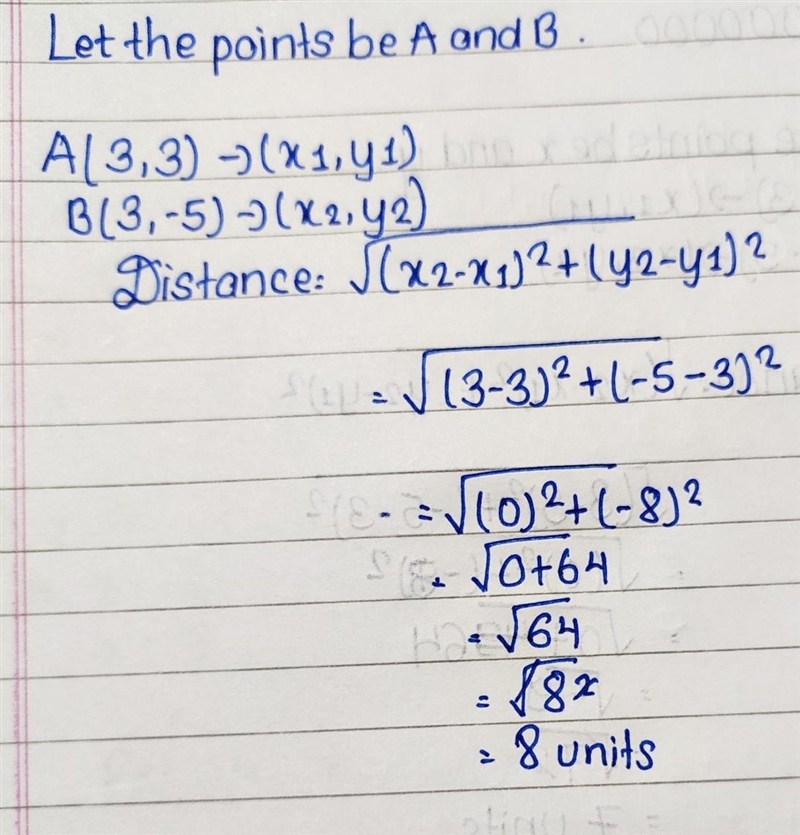 Let the points be A and B.
A(3,3) → (x1, y1)
B(3,-5) → (x2, y2)
Distance: √(x2-x1)²+(y2-y1)²
= √(3-3)²+(-5-3)²
- = √(0)²+(-8)²
= √0+64
= √64
= √8x
= 8 units